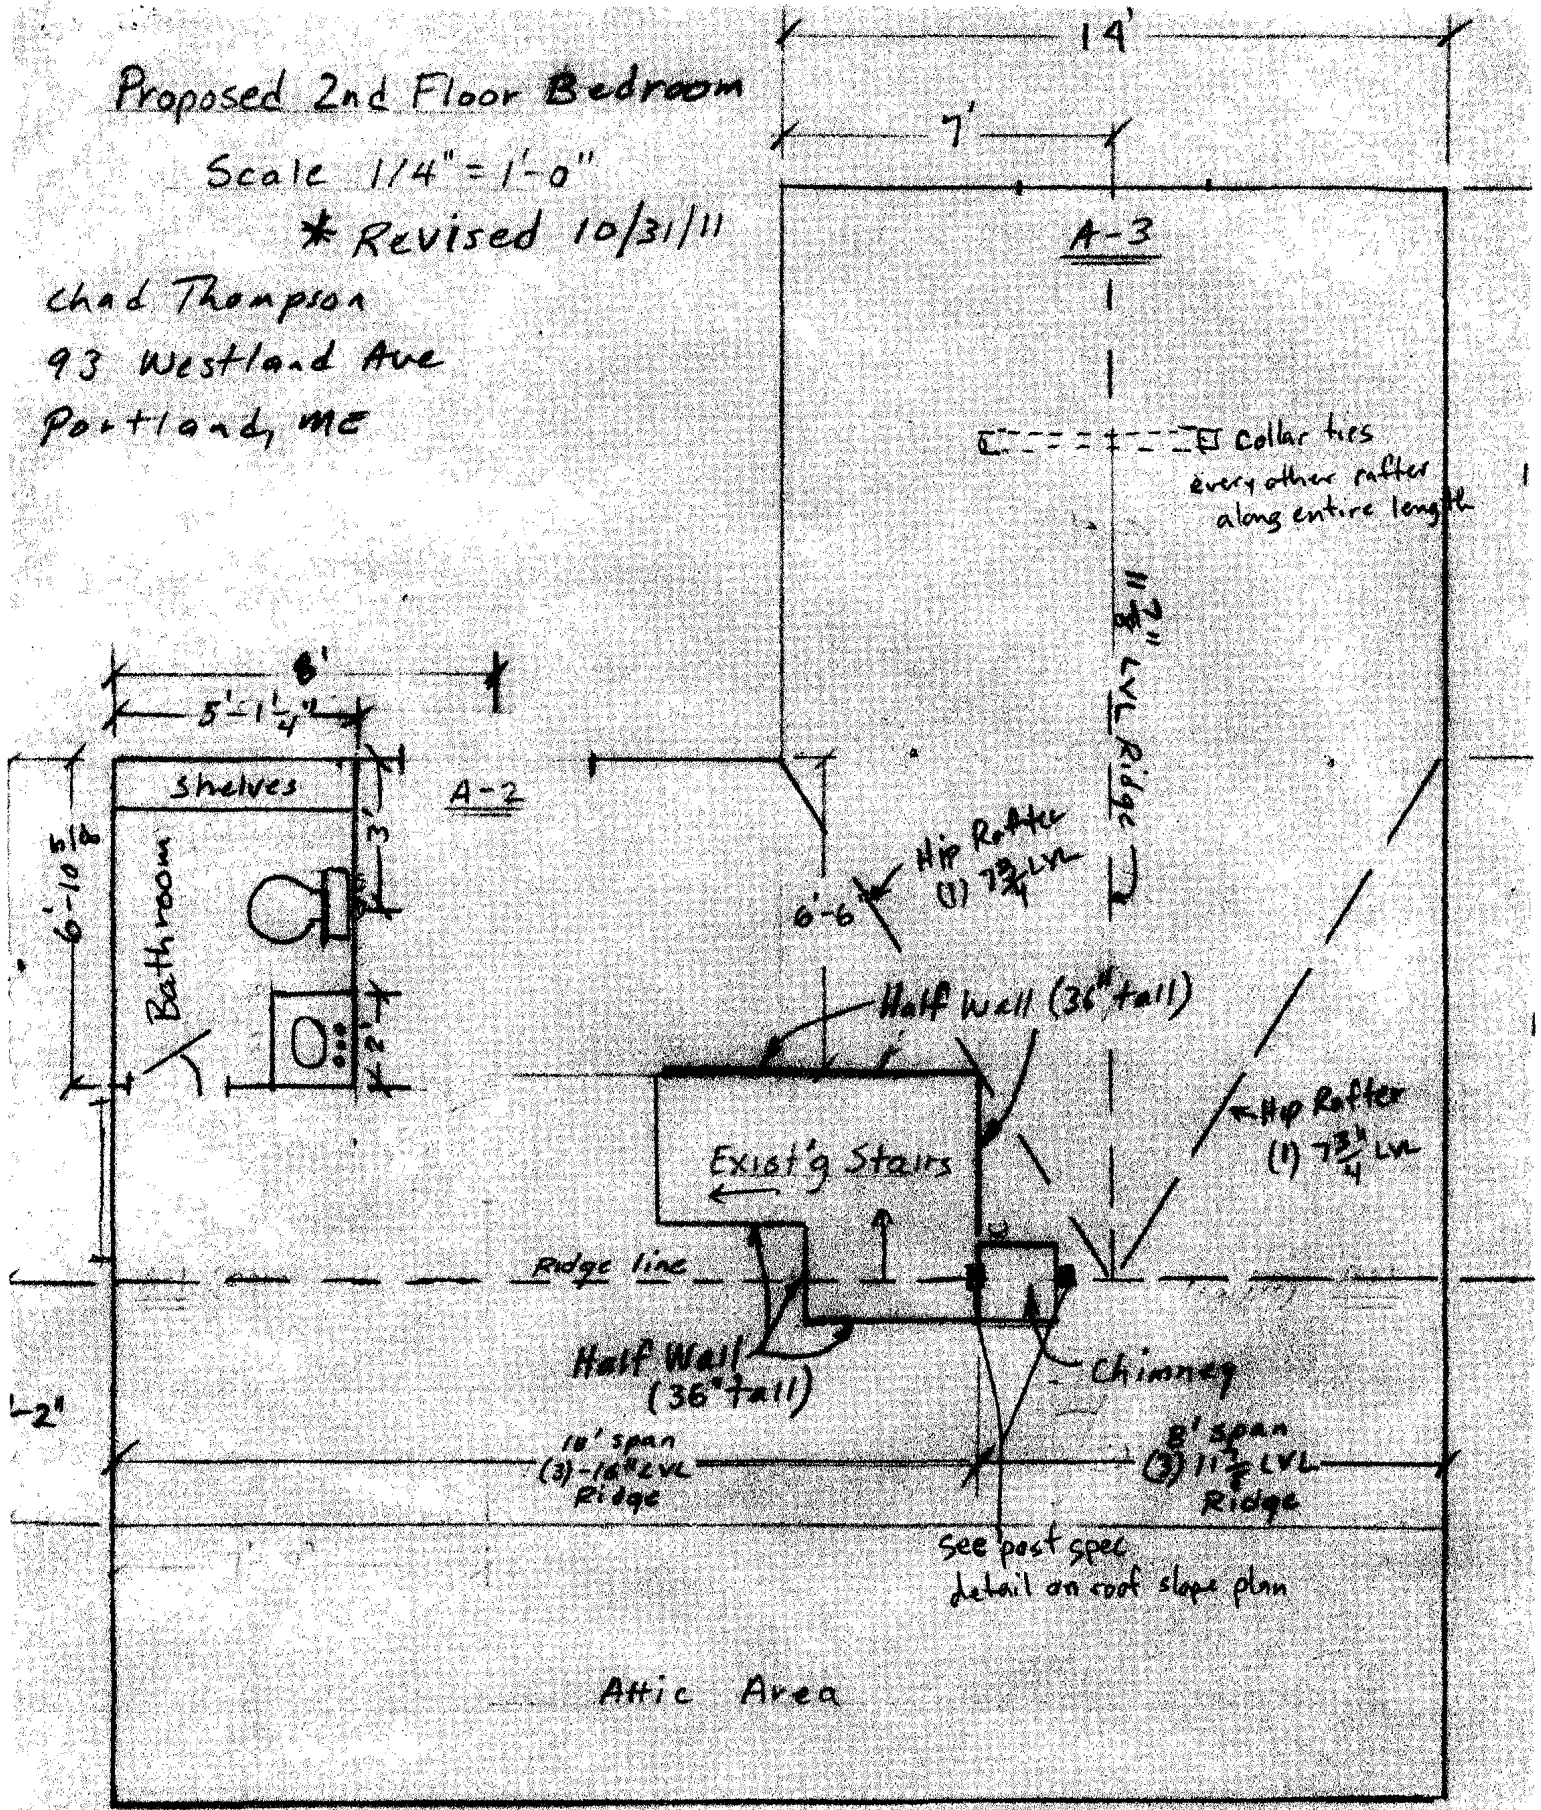 14'
7'
Proposed 2nd Floor Bedroom
Scale 1/4" = 1'-0"
* Revised 10/31/11
Chad Thompson
93 Westland Ave
Portland, ME
A-3
Collar ties
every other rafter
along entire length
11 7/8" LVL Ridge
8'
5'-1 1/4"
Shelves
A-2
3'
6'-10 5/8
Bathroom
2'
Hip Rafter
(1) 7 3/4 LVL
6'-6"
Half Wall (36" tall)
Hip Rafter
(1) 7 3/4" LVL
Exist'g Stairs
Ridge line
Half Wall
(36" tall)
Chimney
-2"
18' span
(3)-16" LVL
Ridge
8' span
(3) 11 7/8 LVL
Ridge
See post spec
detail on roof slope plan
Attic Area